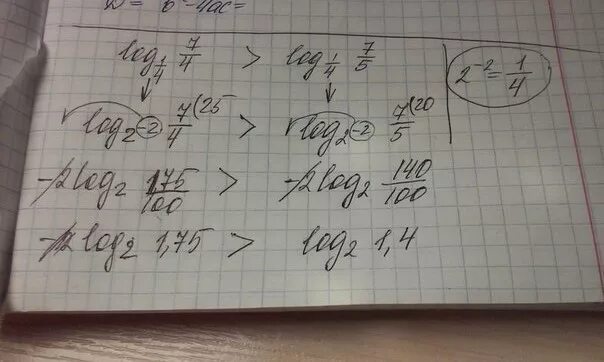 D = b² - 4ac =
log_{1/4} 7/4 > log_{1/4} 7/5
2^{-2} = 1/4
log_{2^{-2}} 7/4 (25 > log_{2^{-2}} 7/5 (20
-2 log_2 175/100 > -2 log_2 140/100
-2 log_2 1,75 > log_2 1,4